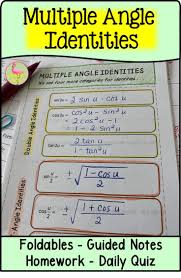 Multiple Angle
Identities
MULTIPLE ANGLE IDENTITIES
We need four more categories for identities.
Double Angle Identities
sin2u = 2 sin u · cos u
cos2u = cos²u − sin²u
= 2cos²u − 1
= 1 − 2 sin²u
tan2u = 2 tan u / 1 − tan²u
Angle Identities
sin u/2 = ± √(1 − cos u / 2)
cos u/2 = ± √(1 + cos u / 2)
Foldables - Guided Notes
Homework - Daily Quiz